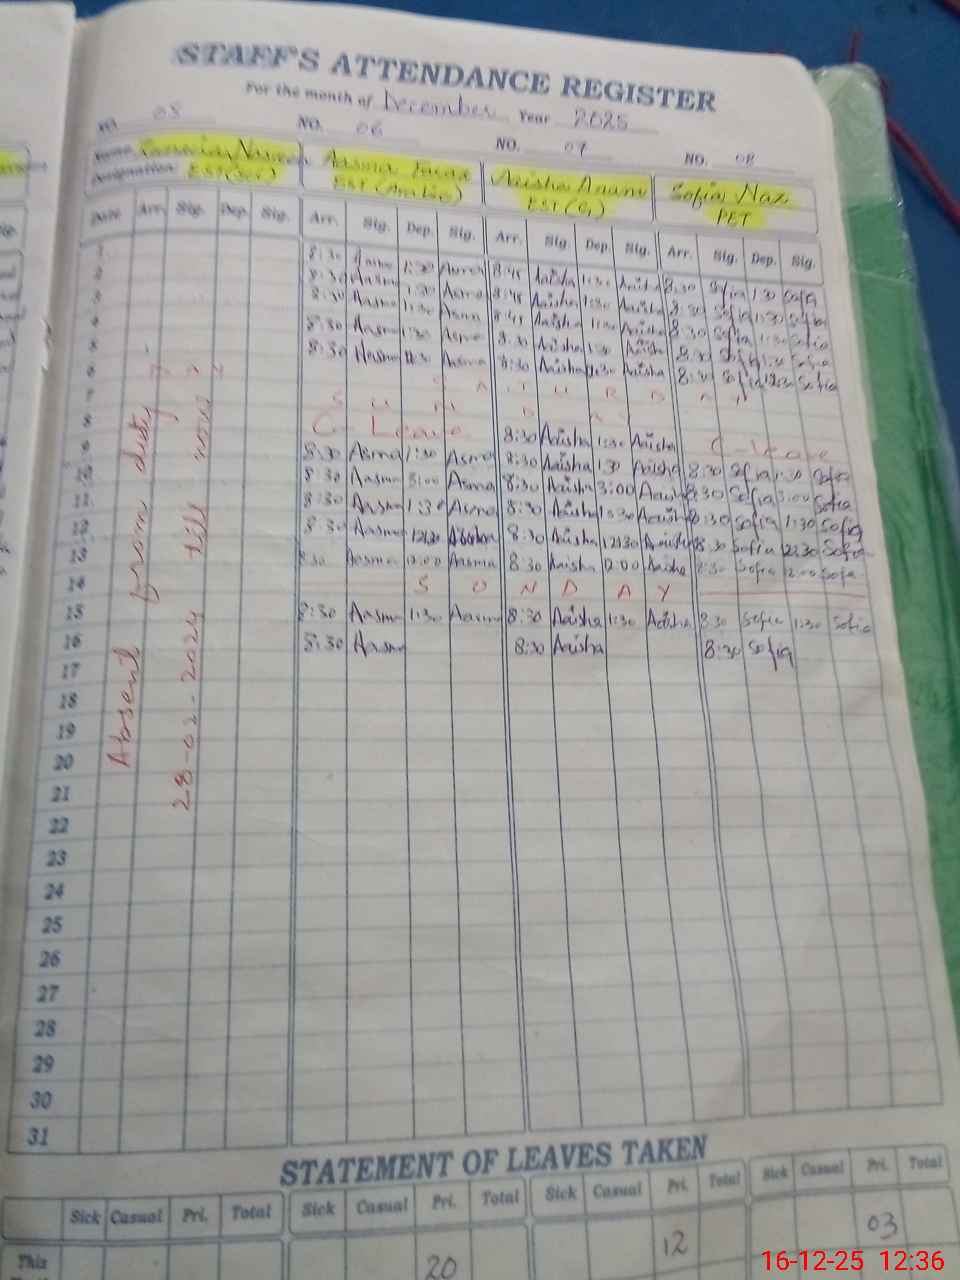 STAFF'S ATTENDANCE REGISTER
For the month of December Year 2025
NO. 05 NO. 06 NO. 07 NO. 08
Name Aasma Faraz Aaisha Anam Sofia Naz
Designation EST (Arabic) PET
Date Arr. Sig. Dep. Sig. Arr. Sig. Dep. Sig. Arr. Sig. Dep. Sig. Arr. Sig. Dep. Sig.
1 8:30 Aasma 1:30 Aasma 8:45 Aaisha 1:30 Aaisha 8:30 Sofia 1:30 Sofia
2 8:30 Aasma 1:30 Asma 8:45 Aaisha 1:30 Aaisha 8:30 Sofia 1:30 Sofia
3 8:30 Aasma 1:30 Asma 8:45 Aaisha 1:30 Aaisha 8:30 Sofia 1:30 Sofia
4 8:30 Aasma 1:30 Asma 8:30 Aaisha 1:30 Aaisha 8:30 Sofia 1:30 Sofia
5 8:30 Aasma 12:30 Aasma 8:30 Aaisha 12:30 Aaisha 8:30 Sofia 12:30 Sofia
6 S A T U R D A Y
7 S U N D A Y
8 C- Leave 8:30 Aaisha 1:30 Aaisha C-leave
9 8:30 Asma 1:30 Asma 8:30 Aaisha 1:30 Aaisha 8:30 Sofia 1:30 Sofia
10 8:30 Aasma 3:00 Asma 8:30 Aaisha 3:00 Aaisha 8:30 Sofia 3:00 Sofia
11 8:30 Aasma 1:30 Asma 8:30 Aaisha 1:30 Aaisha 8:30 Sofia 1:30 Sofia
12 8:30 Aasma 12:30 8:30 Aaisha 12:30 Aaisha 8:30 Sofia 12:30 Sofia
13 8:30 Aasma 12:00 Aasma 8:30 Aaisha 12:00 Aaisha 8:30 Sofia 12:00 Sofia
14 S U N D A Y
15 8:30 Aasma 1:30 Aasma 8:30 Aaisha 1:30 Aaisha 8:30 Sofia 1:30 Sofia
16 8:30 Aasma 8:30 Aaisha 8:30 Sofia
17
18
19
20
21
22
23
24
25
26
27
28
29
30
31
Absent from duty
28-02-2024 till now
STATEMENT OF LEAVES TAKEN
Sick Casual Pri. Total Sick Casual Pri. Total Sick Casual Pri. Total Sick Casual Pri. Total
This 20 12 03
16-12-25 12:36